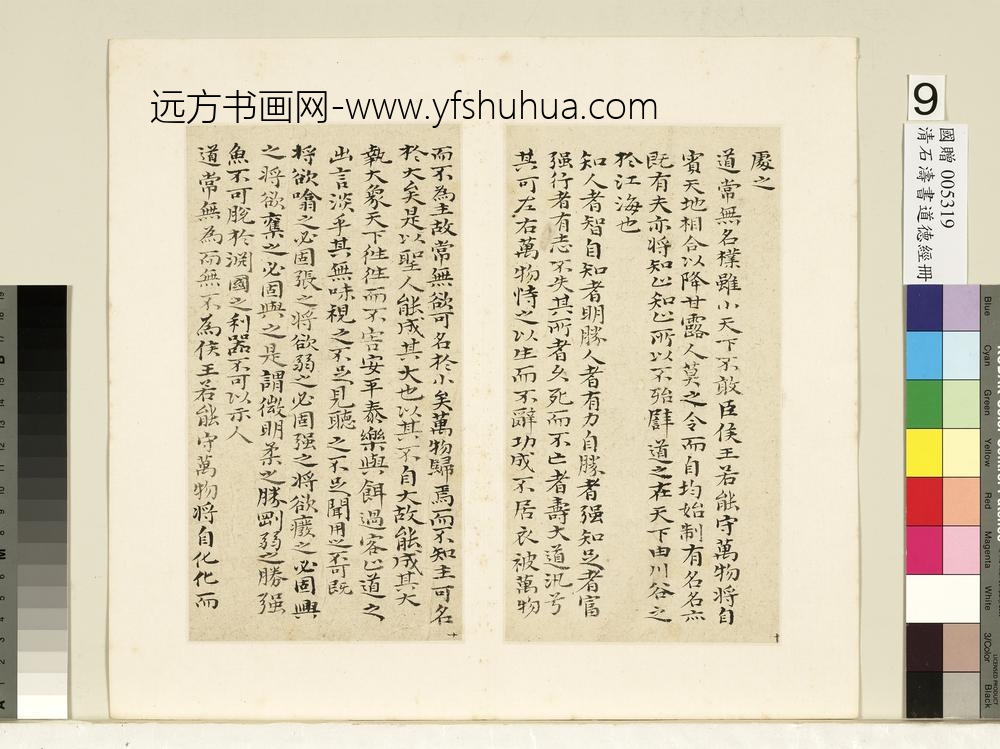 远方书画网-www.yfshuhua.com
9
國贈 005319
清石濤書道德經冊
處之
道常無名樸雖小天下不敢臣侯王若能守萬物將自
賓天地相合以降甘露人莫之令而自均始制有名名亦
既有夫亦將知止知止所以不殆譬道之在天下由川谷之
於江海也
知人者智自知者明勝人者有力自勝者强知足者富
强行者有志不失其所者久死而不亡者壽大道汎兮
其可左右萬物恃之以生而不辭功成不居衣被萬物
而不為主故常無欲可名於小矣萬物歸焉而不知主可名
於大矣是以聖人能成其大也以其不自大故能成其大
執大象天下往往而不害安平泰樂與餌過客止道之
出言淡乎其無味視之不足見聽之不足聞用之不可既
將欲噏之必固張之將欲弱之必固强之將欲廢之必固興
之將欲奪之必固與之是謂微明柔之勝剛弱之勝强
魚不可脫於淵國之利器不可以示人
道常無為而無不為侯王若能守萬物將自化化而
十
十
Blue
Cyan
Green
Yellow
Red
Magenta
White
3/Color
Black